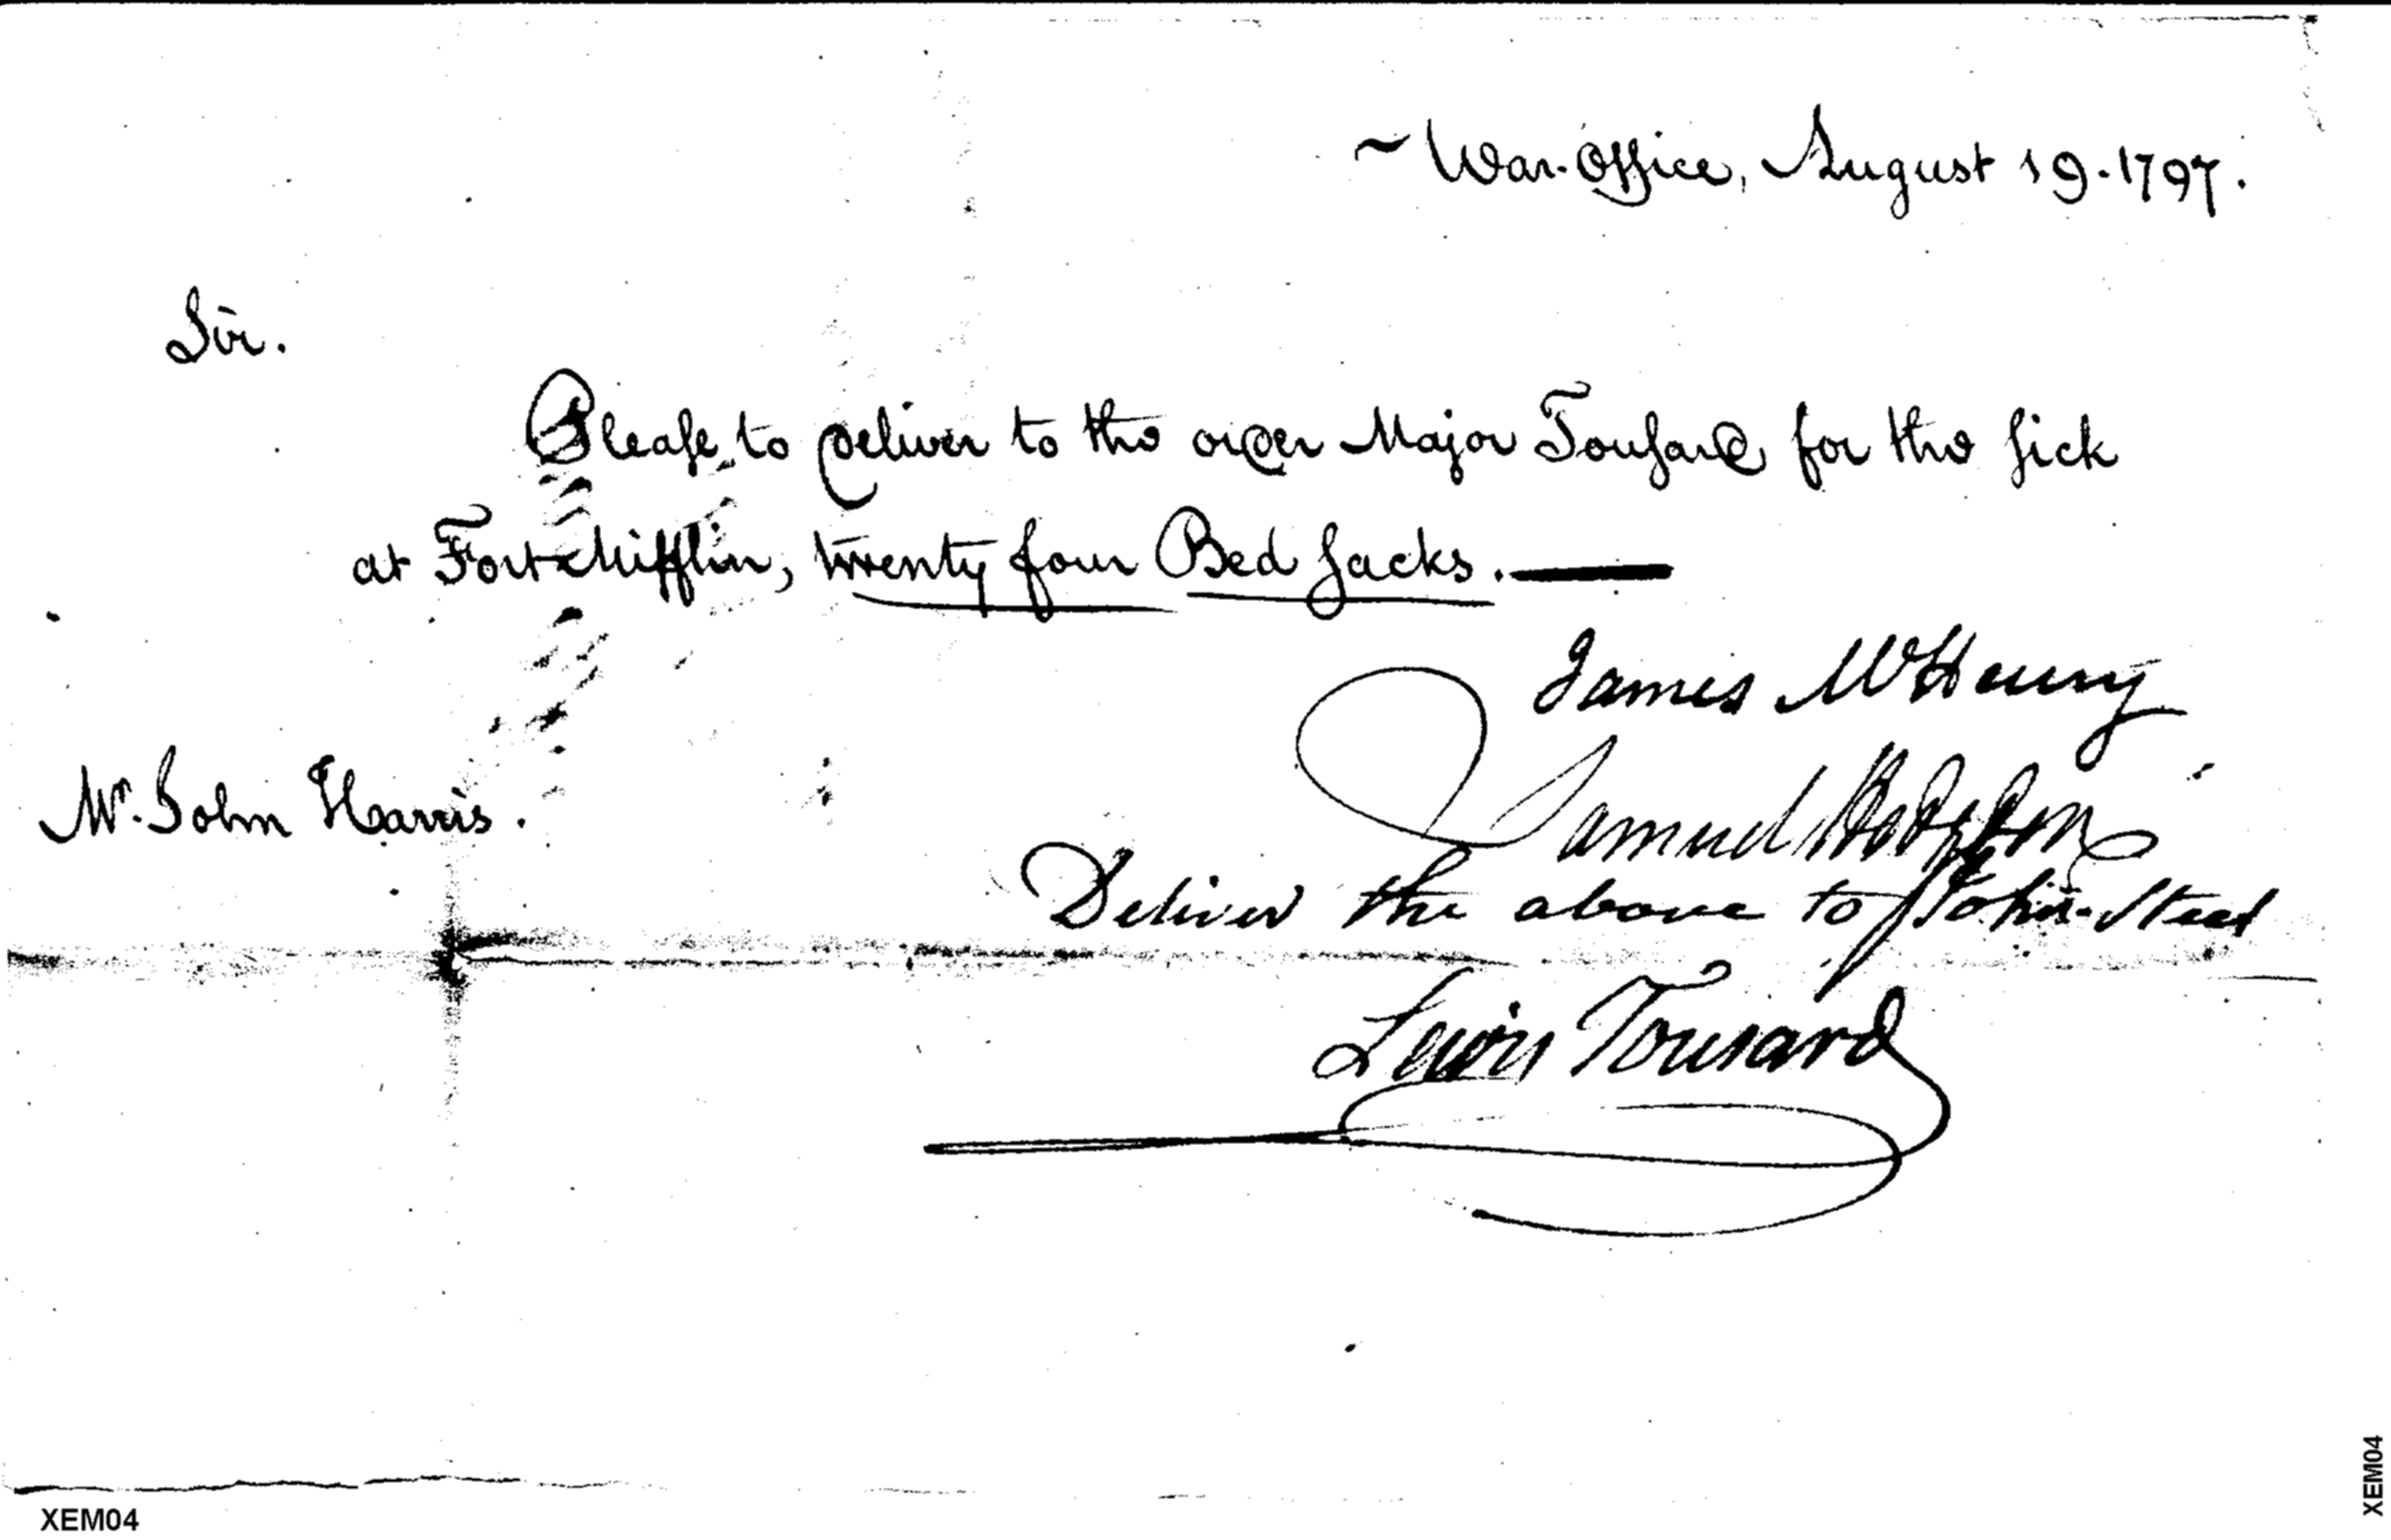 ~ War-Office, August 19. 1797.
Sir.
Please to deliver to the order Major Tousard for the sick
at Fort Mifflin, twenty four Bed sacks.
James McHenry
Samuel Hodgdon
Mr. John Harris.
Deliver the above to John Steel
Lewis Tousard
XEM04
XEM04